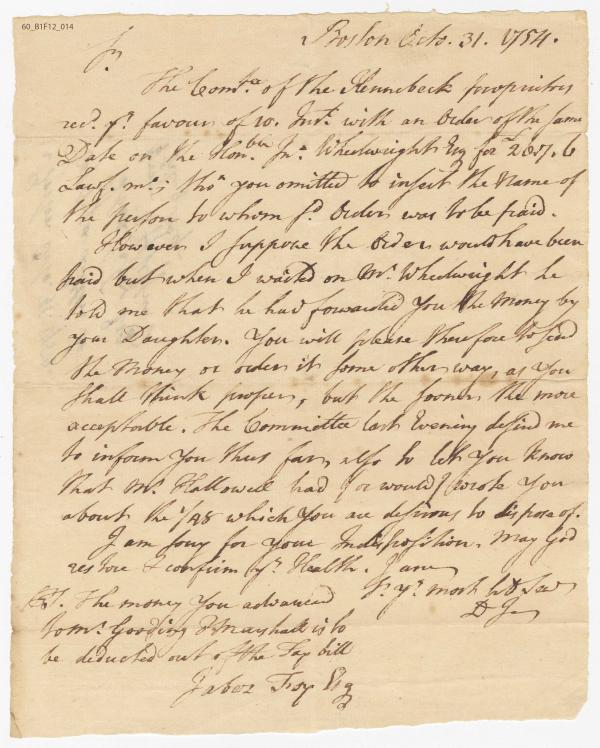 60_B1F12_014
Boston Octo. 31. 1754.
Sr.
The Comtee of the Kennebeck propriitors
recd. yr. favour of 10. Inst. with an Order of the same
Date on the Honble Jno. Wheelwright Esq for £207.6
Lawf. mo.; tho' you omitted to insert the Name of
the person to whom sd. Order was to be paid.
However I suppose the Order would have been
paid but when I waited on Mr. Wheelwright he
told me that he had forwarded You the Money by
your Daughter. You will please therefore to send
the Money or order it some other way, as You
shall think proper, but the sooner the more
acceptable. The Committee last Evening desird me
to inform You thus far, also to let You know
that Mr. Hallowell had (or would) wrote You
about the 1/48 which You are desirous to dispose of.
I am sory for your Indisposition. May God
restore & confirm yr. Health. I am
Sr. yr. most h
D G
The money You advanced
to Mr. Gooding & Marshall is to
be deducted out of the Fay bill
Jabez Foy Esq